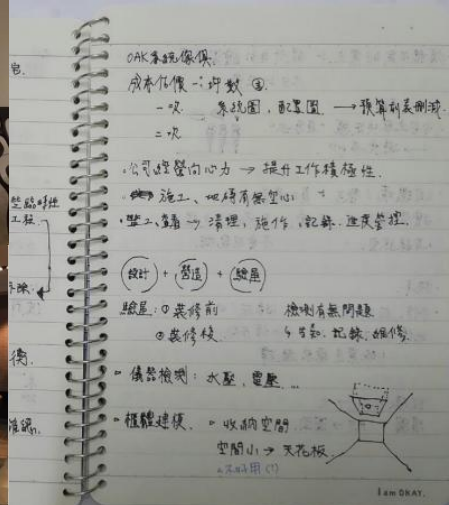 OAK系統傢俱
成本估價→坪數
一次 系統圖,配置圖 → 預算訂義刪減.
二次
·公司經營向心力 → 提升工作積極性.
施工、地磚有無空心
·監工、 → 清理,施作,記錄,進度管理.
設計 + 營造 + 驗屋
驗屋:①裝修前 檢測有無問題
②裝修後 ↳告知.記錄.維修.
儀器檢測:水壓、電壓、...
櫃體建模. 收納空間
空間小→天花板.
不好用(?)
臨時性
工程
I am OKAY.